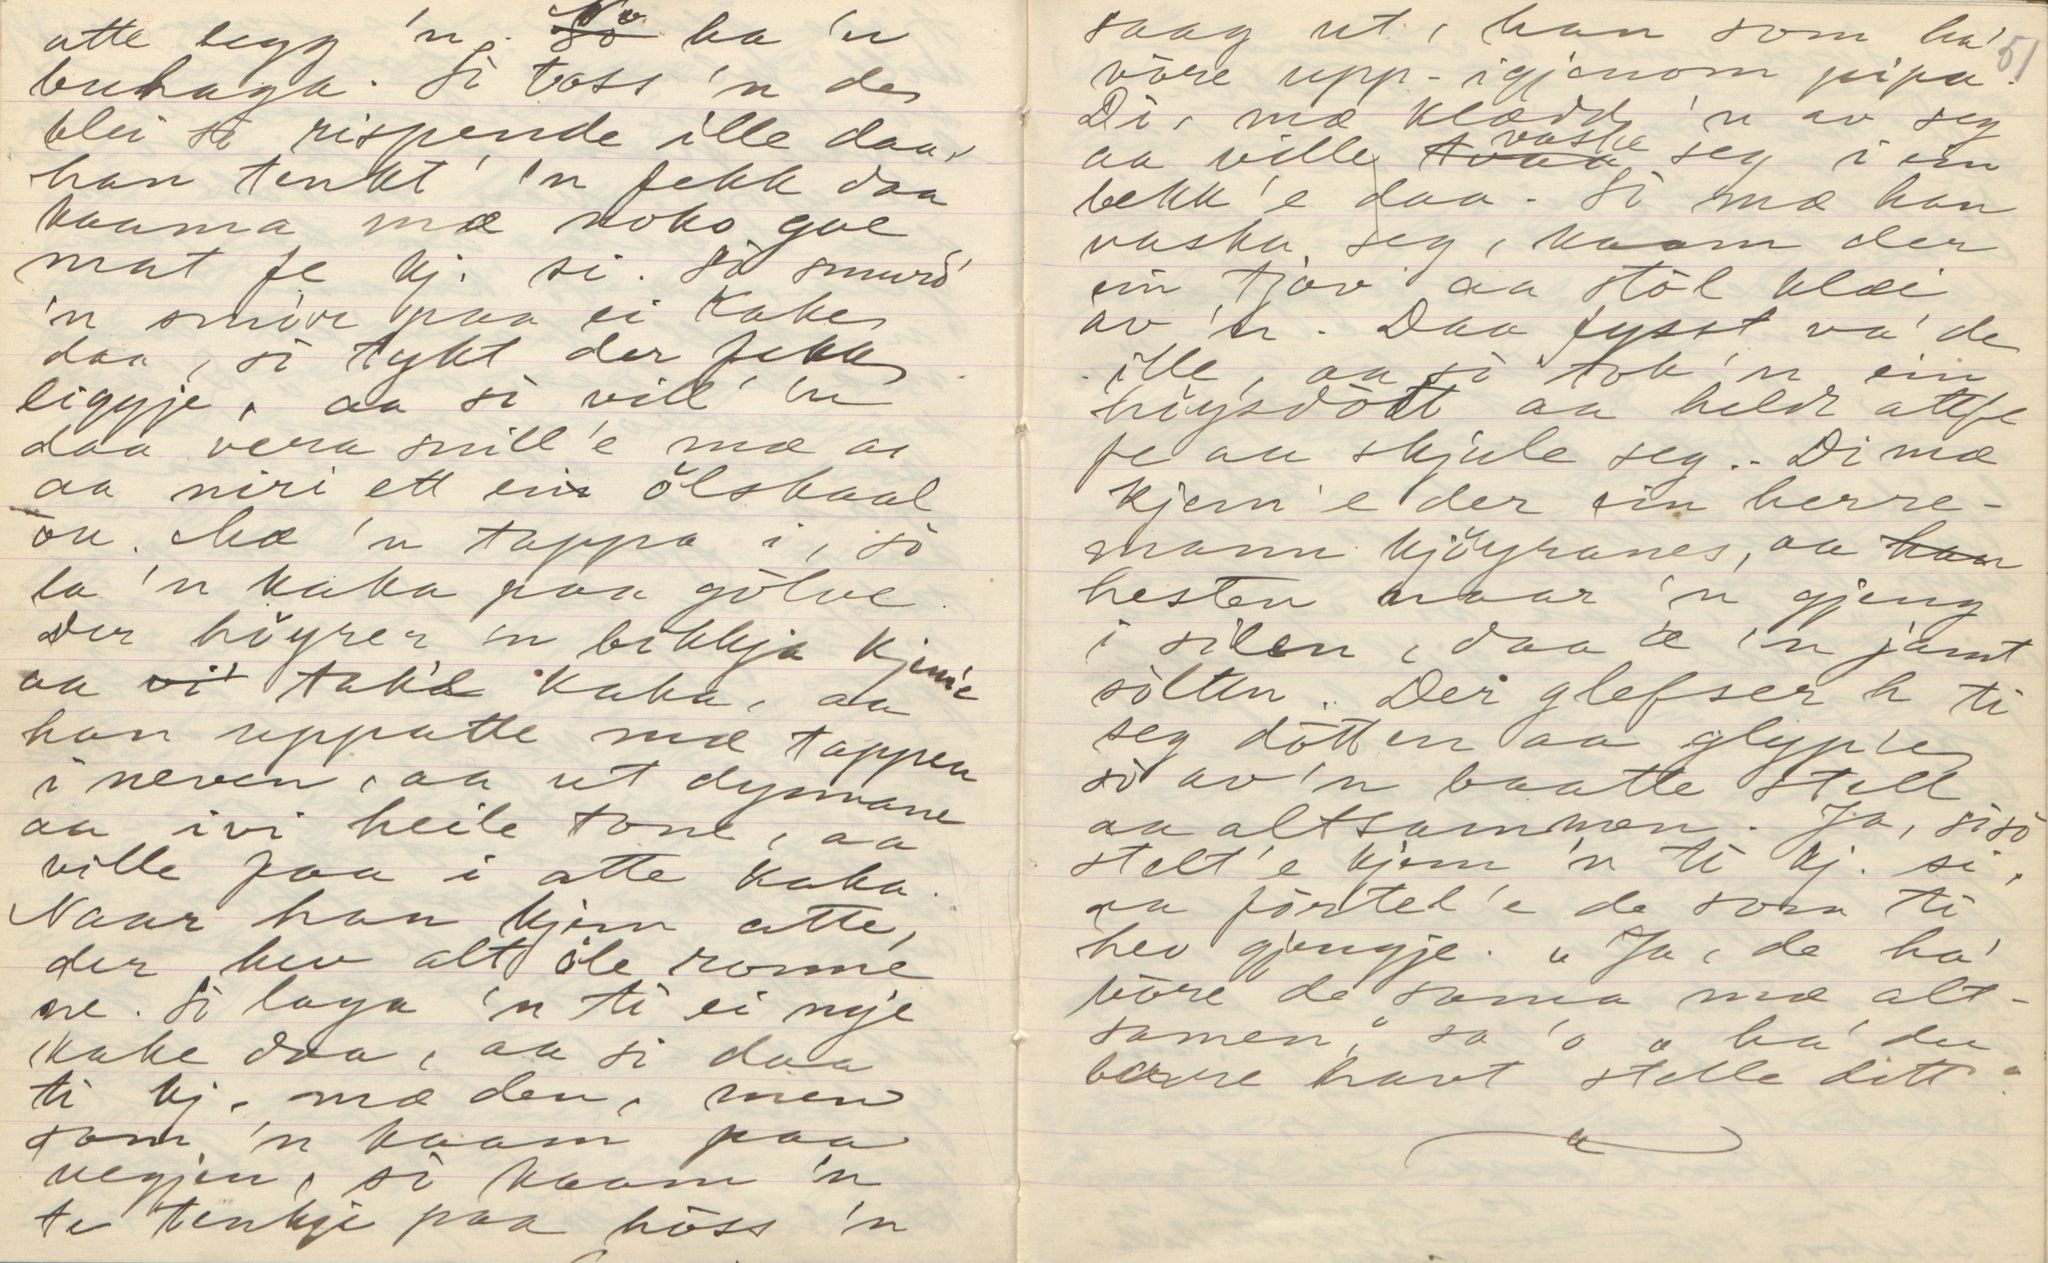 atte legg 'n. ~~Sò~~ No ha 'n
buhaga. Sì toss 'n de
blei så rispende ille daa,
han tenkt' 'n fekk daa
kaama mæ noko goe
mat fe kj. si. Sò smurd'
'n smör paa ei kake
daa, sò tykt der fekk
liggje, aa sò vill 'n
daa vera snill'e mæ a
aa niri ett ein ölskaal
òu. Mæ 'n tappa i, sò
la 'n kaka paa gòlve.
Der höyrer 'n bikkja kjem'e
aa ~~vi'~~ tak'e kaka, aa
han uppatte mæ tappen
i neven, aa ut dynnane
aa ivi heile tone, aa
ville faa i atte kaka.
Naar han kjem atte,
der hev alt öle ronne
ne. Sò laga 'n ti ei nyje
kake daa, aa si daa
ti kj. mæ den, men
som 'n kaam paa
vegjen, sò kaam 'n
te tenkje paa hòss 'n
51
saag ut, han som ha'
vòre upp-igjenom pipa.
Di, mæ klædd 'n av seg
aa ville ~~tvaa~~ vaske seg i ein
bekk'e daa. Sì mæ han
vaska seg, kaam der
ein tjòv aa stòl klæi
av 'n. Daa fysst va' de
ille, aa sò tok 'n ein
höysdòtt aa heldt attfe
fe aa skjule seg.. Di mæ
kjem'e der ein herre-
mann kjöyranes, aa ~~han~~
hesten naar 'n gjeng
i silen, daa æ 'n jamt
sòlten. Der glefser h ti
seg dòtten aa glyp'e
sò av 'n baatte stell
aa altsammen. Ja, sisò
stelt'e kjem 'n ti kj. si,
aa förtel'e de som ti
hev gjengje. „Ja, de ha'
vòre de sama mæ alt-
samen," sa 'o „ha' du
berre havt stelle ditt."